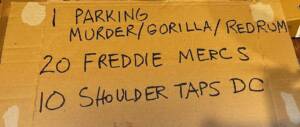 1 PARKING
MURDER/GORILLA/REDRUM
20 FREDDIE MERCS
10 SHOULDER TAPS DC